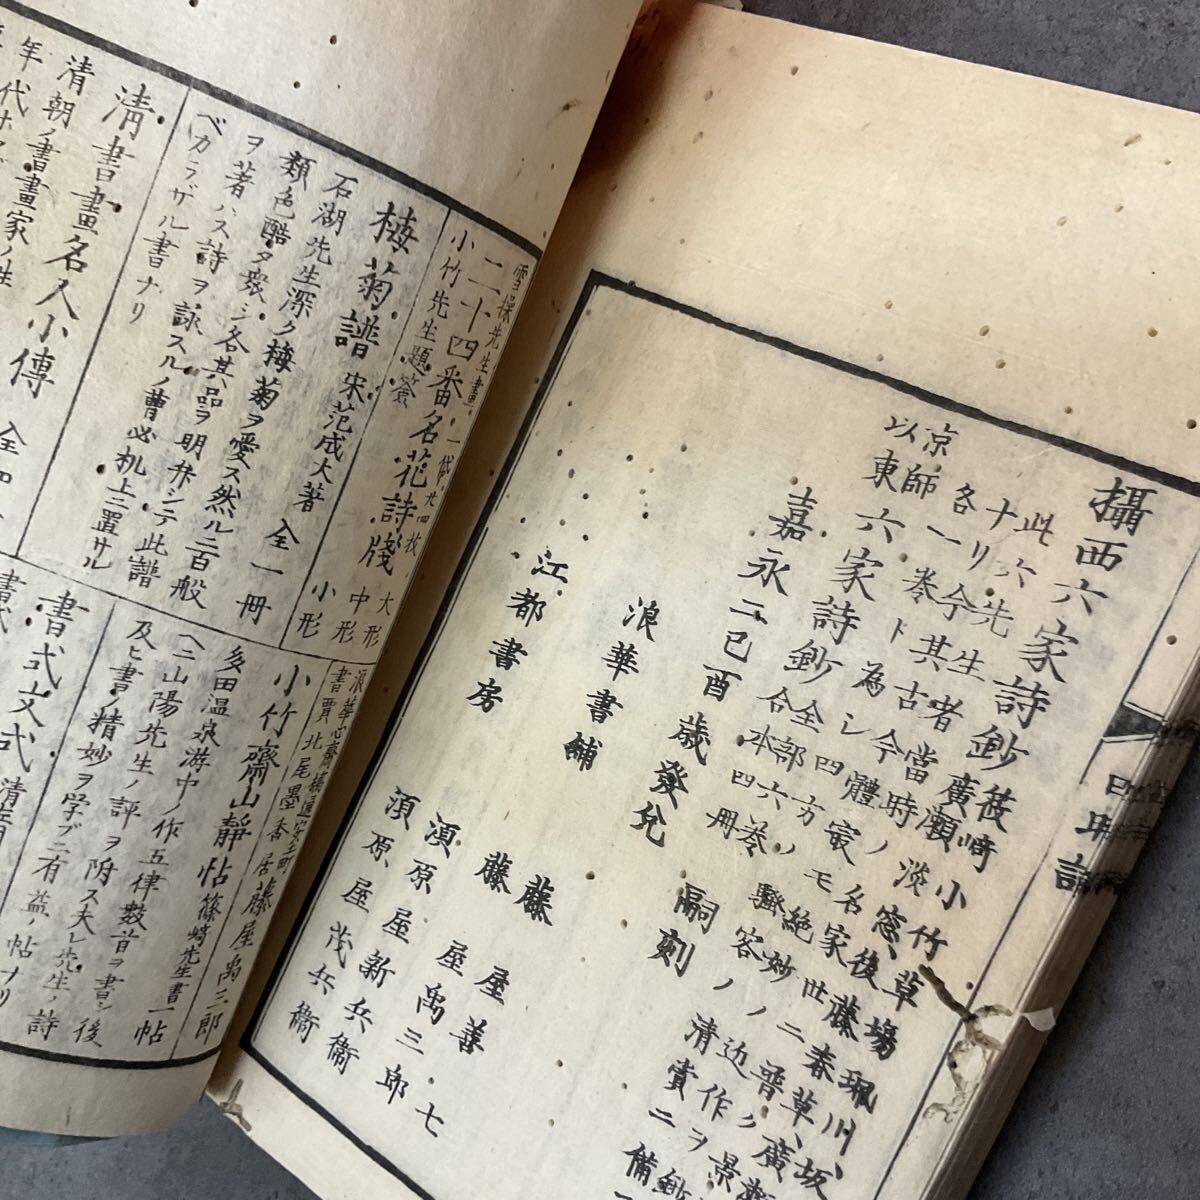 攝西六家詩鈔
篠崎小竹
廣瀬淡窻
草塲珮川
後藤春草
廣瀬
坂
此六先生者當時ノ名家世ニ普ク
ナリ今其古今體ノ寂モ絶妙ノ作ヲ
各一巻ト為シ四方ノ騒客ノ清賞ニ備
京師
以東 六家詩鈔 全部六巻
合本四冊 嗣刻
嘉永二己酉歳發兌
浪華書舗
藤屋善七
藤屋禹三郎
江都書房
須原屋新兵衞
須原屋茂兵衞
雪操先生畫 一帙廿四枚
二十四番名花詩牋 大形
中形
小形
小竹先生題簽
梅菊譜 宋范成大著 全一冊
石湖先生深ク梅菊ヲ愛ス然ルニ百般
類色酷タ衆シ各其品ヲ明弁シテ此譜
ヲ著ハス詩ヲ詠スルノ曹必机上ニ置サル
ベカラザル書ナリ
清書畫名人小傳
清朝ノ書畫家ノ姓
浪華心齋橋通安堂寺町
書賈 北尾墨香居藤屋禹三郎
小竹齋山靜帖 篠崎先生書 一帖
多田温泉游中ノ作五律數首ヲ書シ後
ヘニ山陽先生ノ評ヲ附ス夫レ先生ノ詩
及ヒ書ノ精妙ヲ学ブニ有益ノ帖ナリ
書式文式